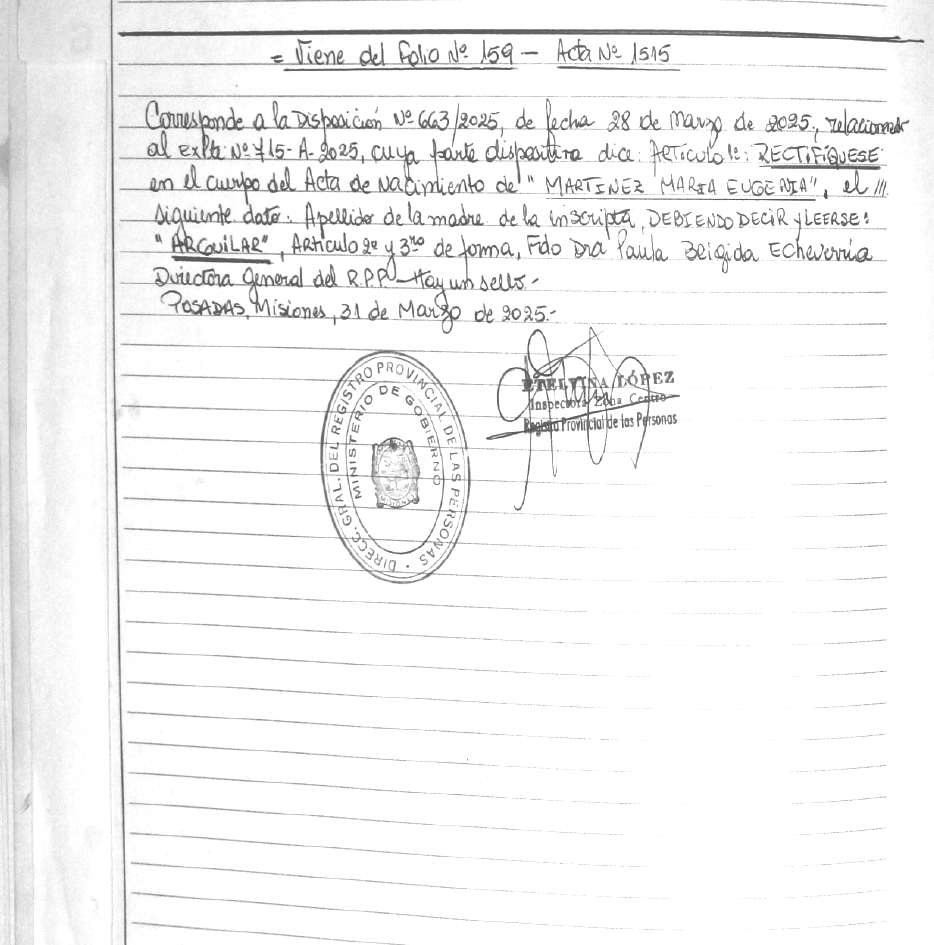 = Viene del Folio Nº 159 - Acta Nº 1515
Corresponde a la Disposición Nº 663/2025, de fecha 28 de Marzo de 2025, relacionado
al Expte Nº 715-A-2025, cuya parte dispositiva dice: Artículo 1º: RECTIFÍQUESE
en el cuerpo del Acta de Nacimiento de "MARTINEZ MARIA EUGENIA", el ///
siguiente dato: Apellido de la madre de la inscripta, DEBIENDO DECIR y LEERSE:
"ARGUILAR", Artículo 2º y 3ro de forma, Fdo Dra Paula Brigida Echeverría
Directora General del R.P.P - Hay un sello.-
POSADAS, Misiones, 31 de Marzo de 2025.-
ETELVINA LÓPEZ
Inspectora Zona Centro
Registro Provincial de las Personas
DIRECC. GRAL. DEL REGISTRO PROVINCIAL DE LAS PERSONAS
MINISTERIO DE GOBIERNO
MISIONES